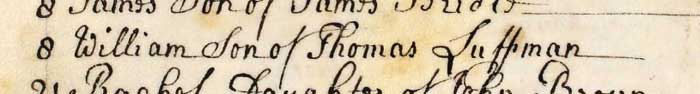 8 James Son of James Bridle
8 William Son of Thomas Luffman
21 Rachel Daughter of John Brown